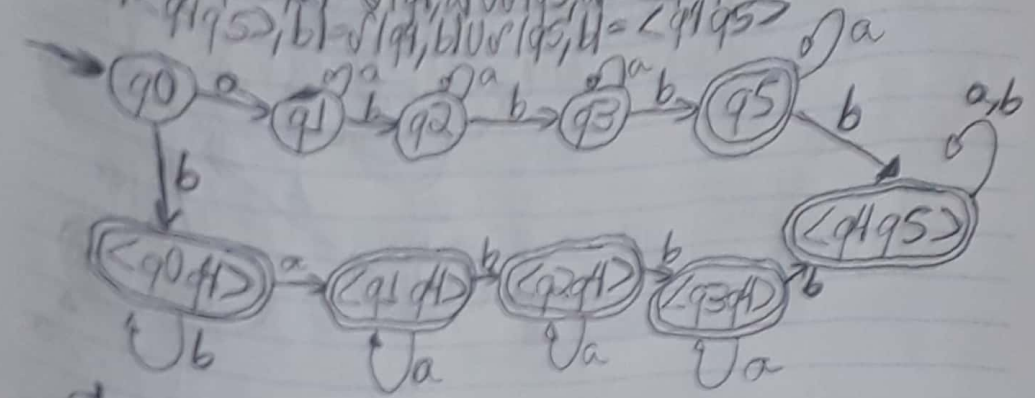 q4q5>,b)=δ(q4,b)∪δ(q5,b)=<q4q5>
q0 a q1 a b q2 a b q3 a b q5 a
b b a,b
<q4q5>
<q0q4> a <q1q4> b <q2q4> b <q3q4> b
b a a a